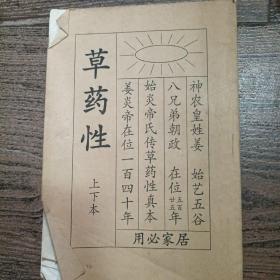 神农皇姓姜 始艺五谷
八兄弟朝政 在位五百廿五年
始炎帝氏传草药性真本
姜炎帝在位一百四十年
居家必用
草药性
上下本